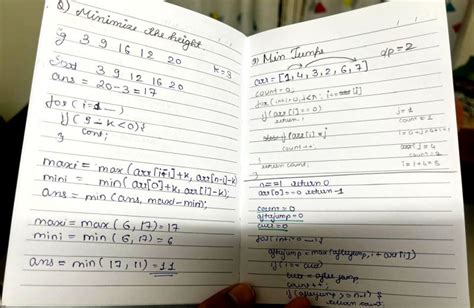 Q) Minimize the height
3 9 16 12 20
k = 3
Sort 3 9 12 16 20
ans = 20-3 = 17
for (i=1 )
if (
- k < 0) {
cont;
}
maxi = max (arr[i-1]+k, arr[n-1]-k)
mini = min (arr[0]+k, arr[i]-k);
ans = min (ans, maxi-mini);
maxi = max ( 6, 17) = 17
mini = min ( 6, 17) = 6
ans = min ( 17, 11) = 11
Min Jumps
o/p = 2
arr = [1, 4, 3, 2, 6, 7]
count = 0;
for (int i=0; i<n;
if (arr[i] == 0)
return
if (arr[i]
count++;
}
return count;
n == 1 return 0
arr[0] == 0 return -1
count = 0
afterjump = 0
curr = 0
for (int i=0 -
afterjump = max (afterjump, i + arr[i])
if (i == curr)
curr = afterjump
count++;
if (afterjump >= n-1) {
return count;